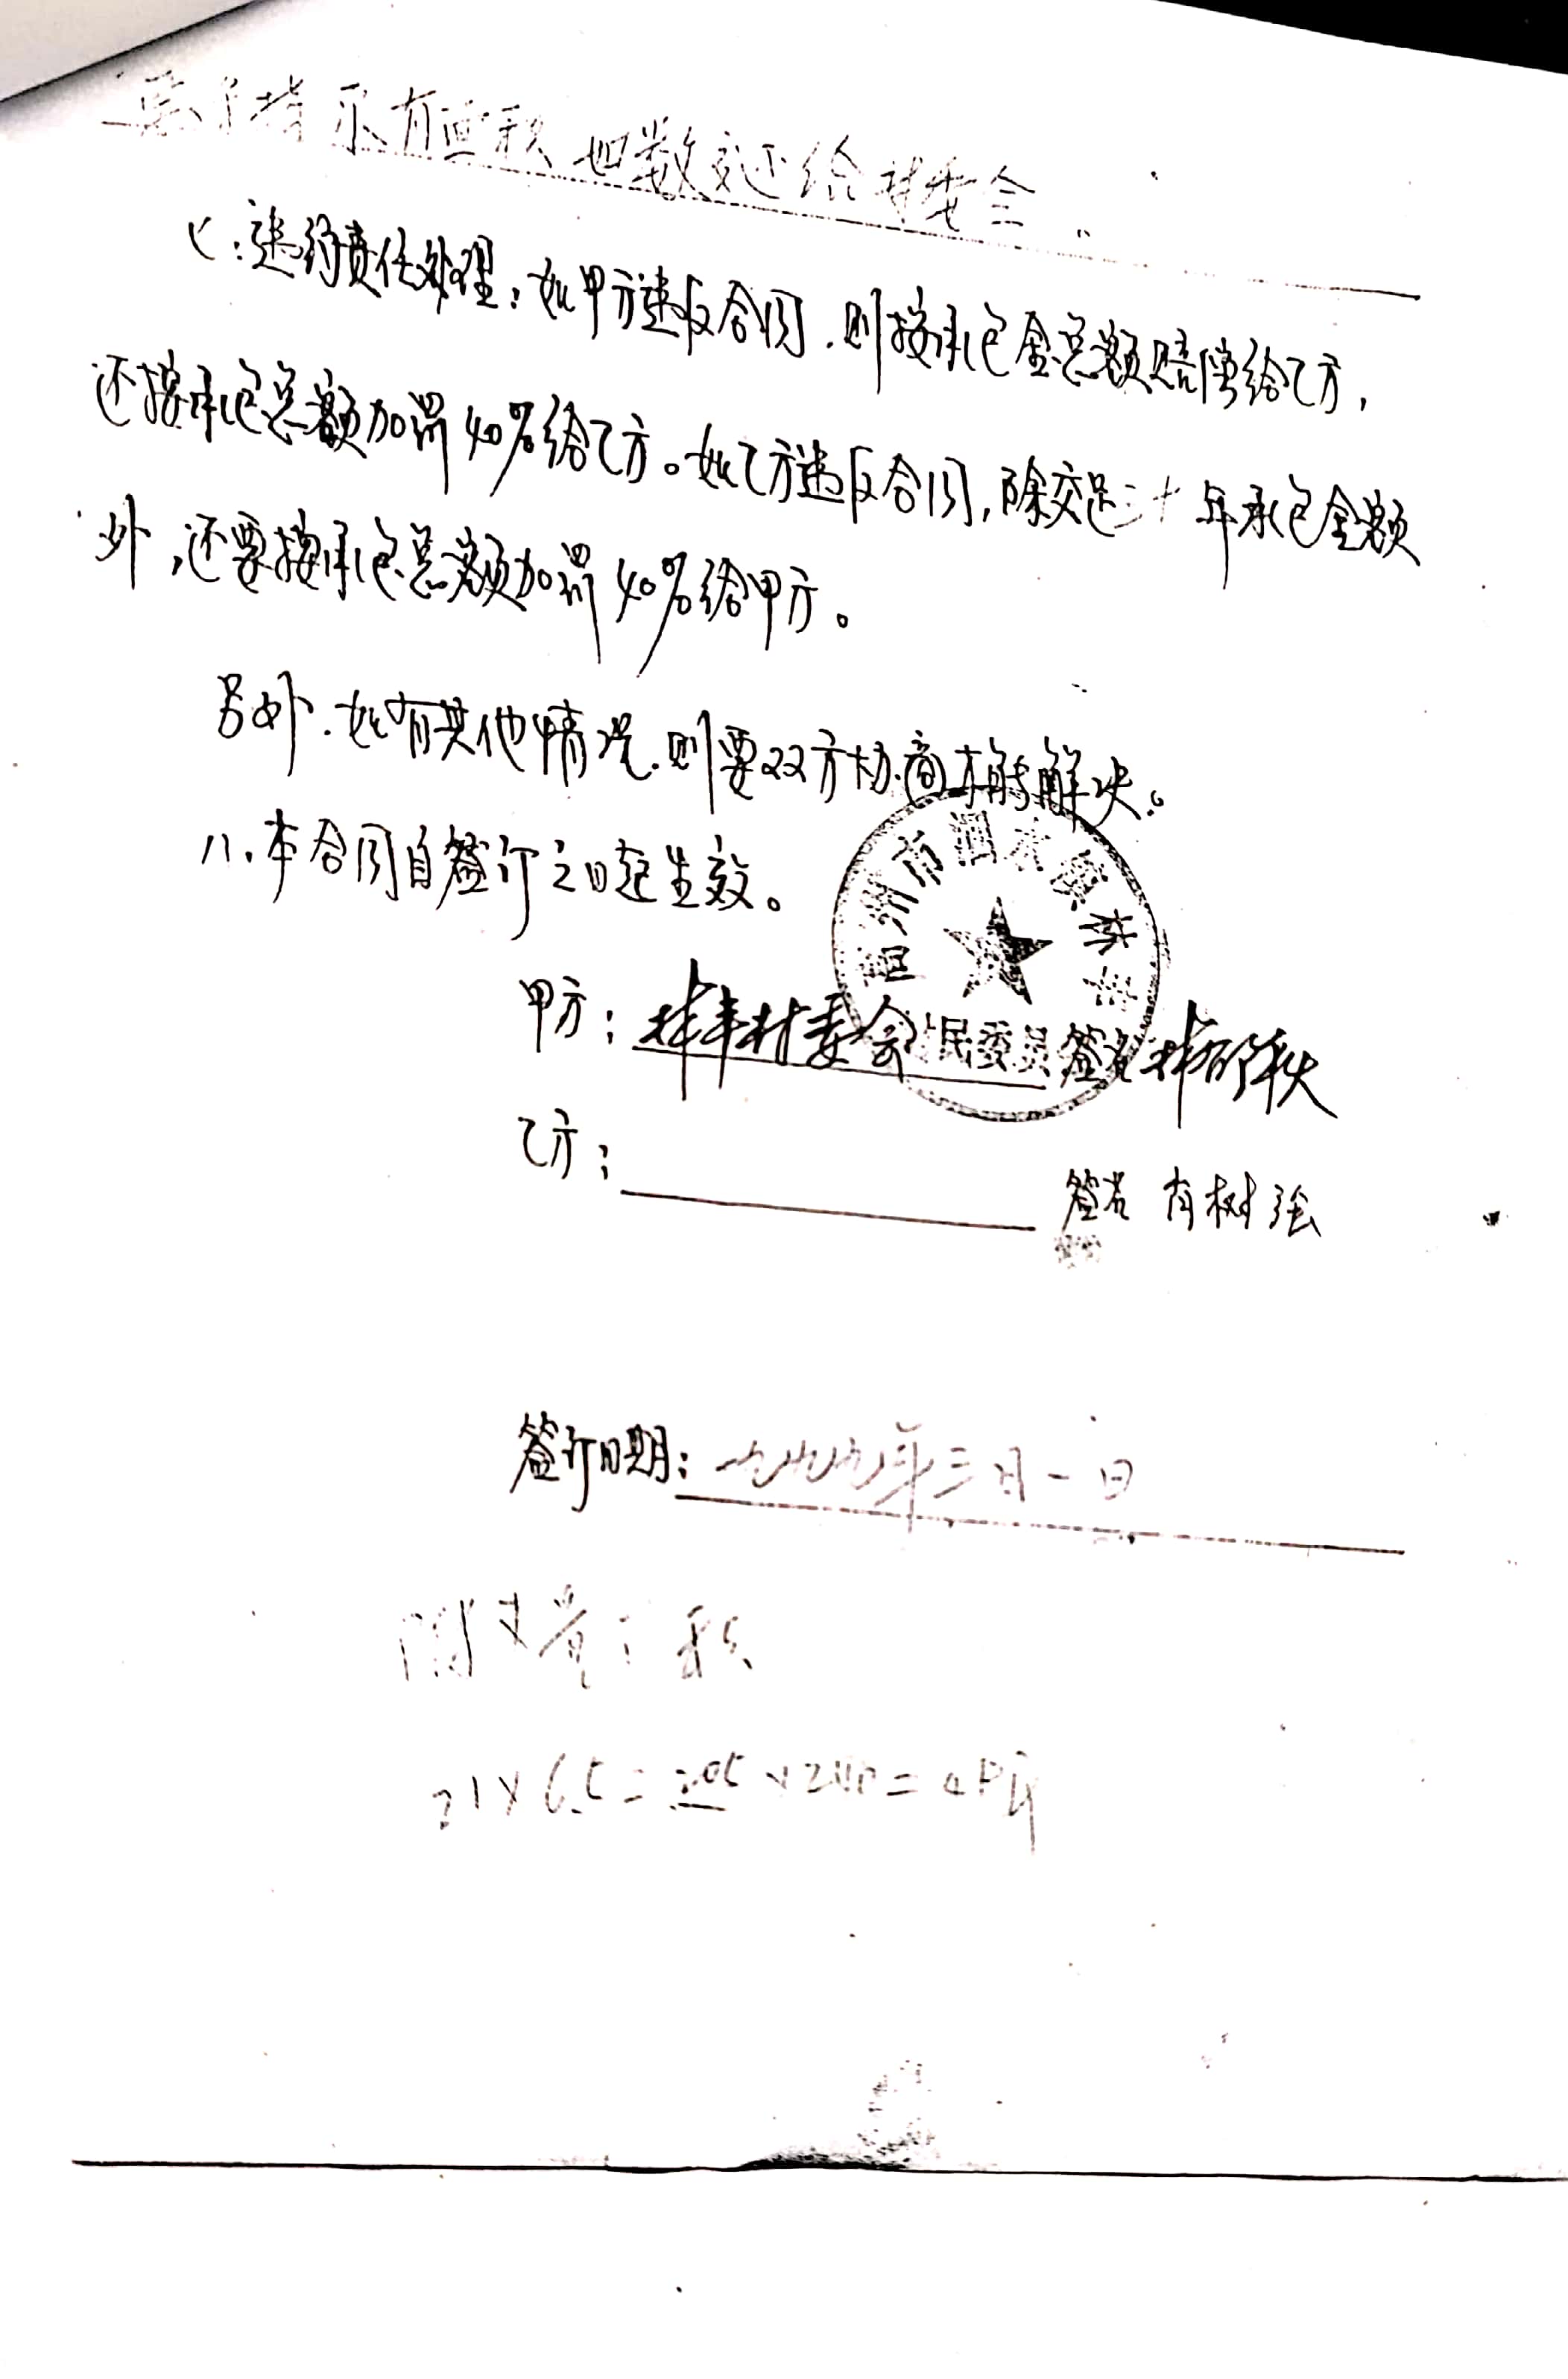 所有面积如数交还给村委会。
七:违约责任处理:如甲方违反合同,则按承包金总额赔偿给乙方,
还按承包总额加罚40%给乙方。如乙方违反合同,除交足三十年承包金额
外,还要按承包总额加罚40%给甲方。
另外.如有其他情况.则要双方协商才能解决。
八、本合同自签订之日起生效。
甲方:林丰村委会 签名
州市湄 区 村民委员
乙方: 签名 树强
签订日期:一九九九年三月一日